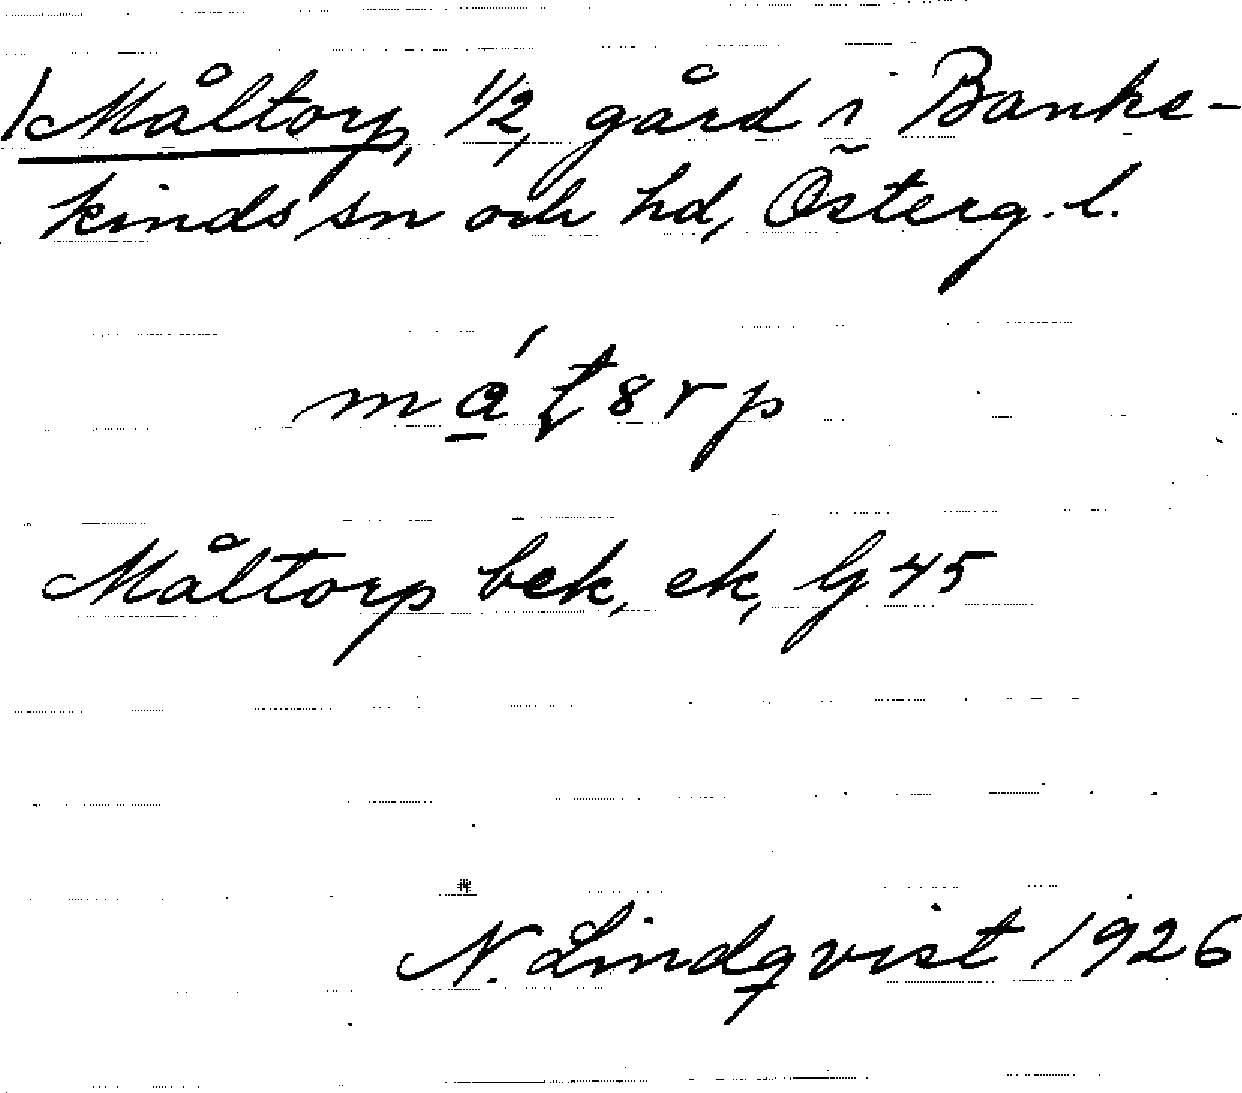 1 Måltorp, 1/2, gård i Banke-
kinds sn och hd, Österg. l.
Måltorp bek, ek, G 45
N. Lindqvist 1926